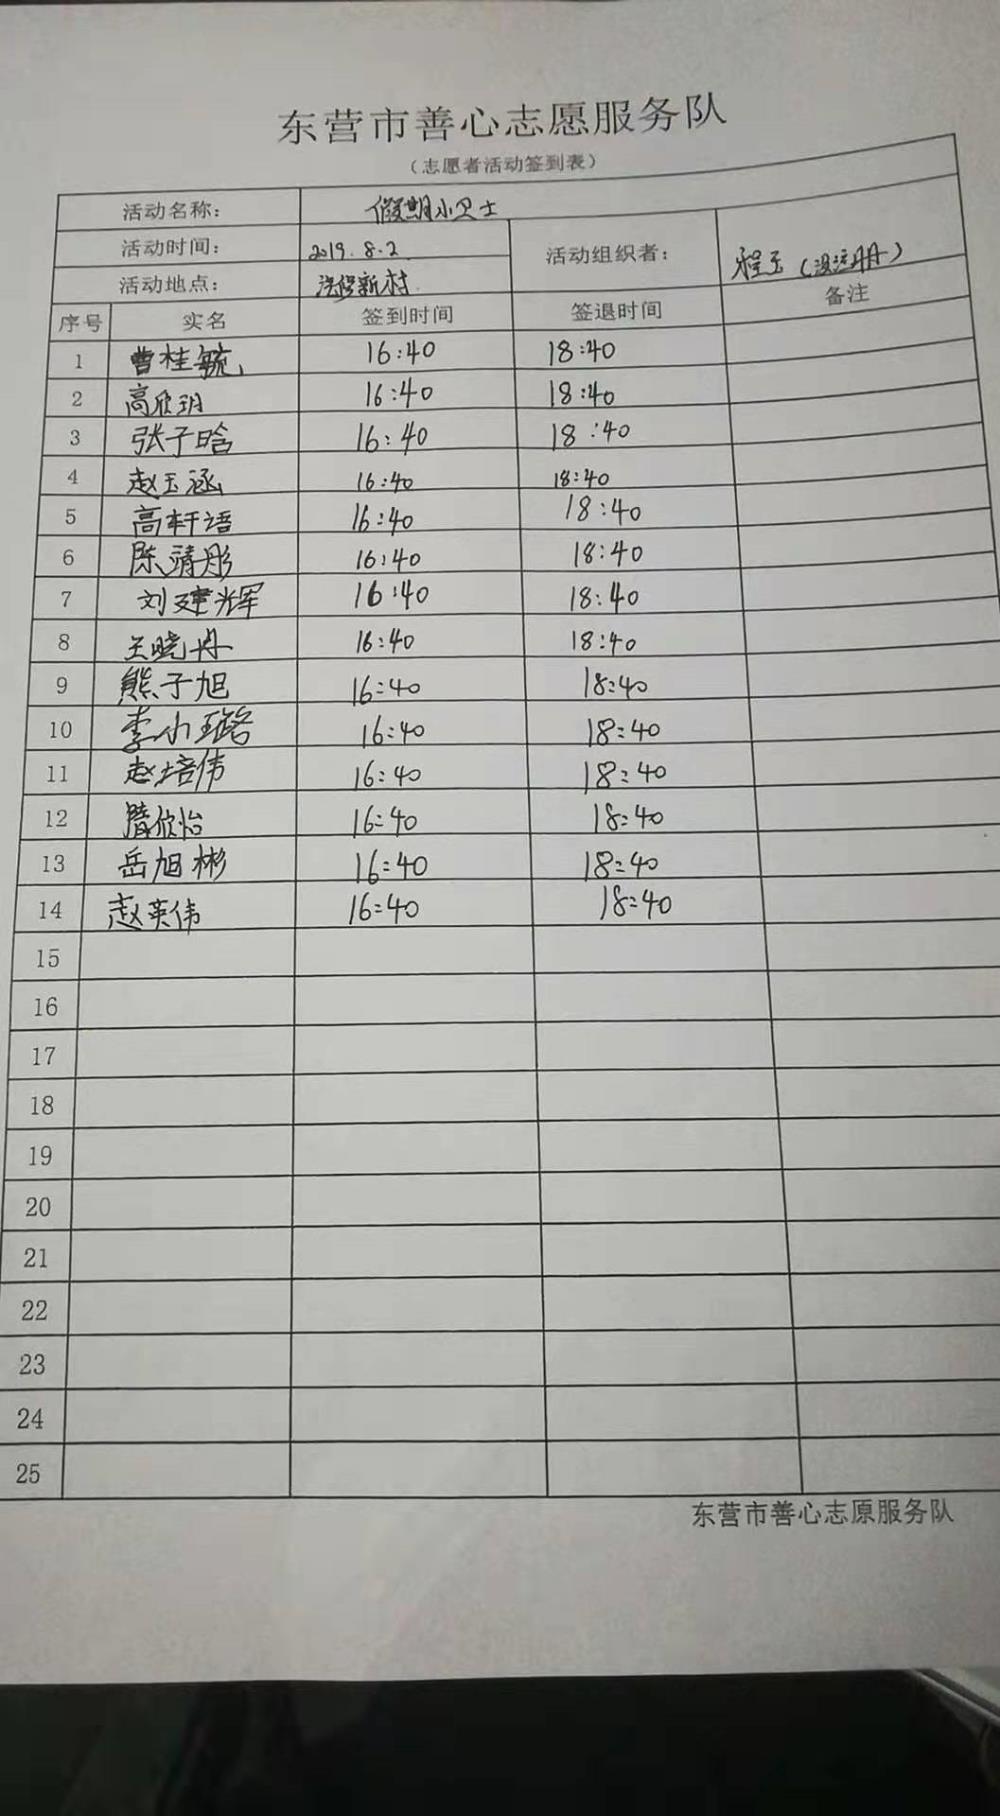 东营市善心志愿服务队
（志愿者活动签到表）
活动名称： 假期小卫士
活动时间： 2019.8.2 活动组织者： 程玉（没注册）
活动地点： 新村
序号 实名 签到时间 签退时间 备注
1 曹桂毓 16:40 18:40
2 高欣玥 16:40 18:40
3 张子晗 16:40 18:40
4 赵玉涵 16:40 18:40
5 高轩语 16:40 18:40
6 陈靖彤 16:40 18:40
7 刘建辉 16:40 18:40
8 王晓丹 16:40 18:40
9 熊子旭 16:40 18:40
10 李小璐 16:40 18:40
11 赵培伟 16:40 18:40
12 欣怡 16:40 18:40
13 岳旭彬 16:40 18:40
14 赵英伟 16:40 18:40
15
16
17
18
19
20
21
22
23
24
25
东营市善心志原服务队